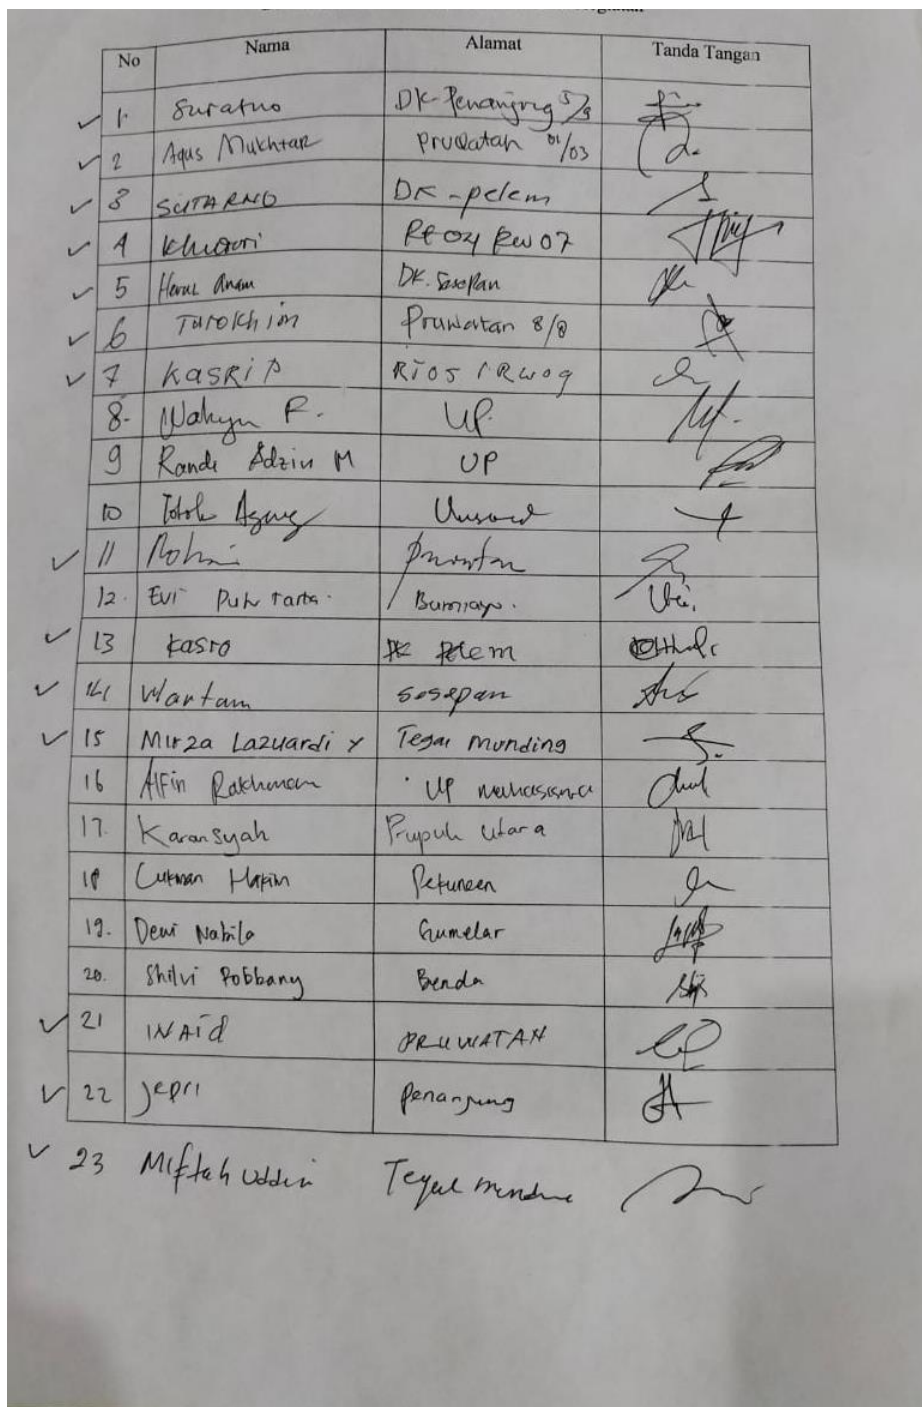 No Nama Alamat Tanda Tangan
1. Suratno DK-Penanjung 5/9
2 Agus Mukhtar Pruwatan 01/03
3 SUTARNO DK-pelem
4 Khaori Rt 04 Rw 07
5 Herul Anam DK. Sosepan
6 Turokhim Pruwatan 8/8
7 KASRIP RT05 / RW09
8. Wahyu F. UP.
9 Randi Adzin M UP
10 Totok Agung Unsoed
11 Rohmi Pruwatan
12. Evi Bumiayu.
13 Kasro DK Pelem
14 Wartam sosepan
15 Mirza Lazuardi Y Tegal Munding
16 Alfin Rakhman UP mahasiswa
17. Karansyah Prupuk Utara
18 Lukman Hakim Petuneen
19. Dewi Nabila Gumelar
20. Shilvi Robbany Benda
21 INAID PRUWATAN
22 Jepri Penanjung
23 Miftah Uddin Tegal